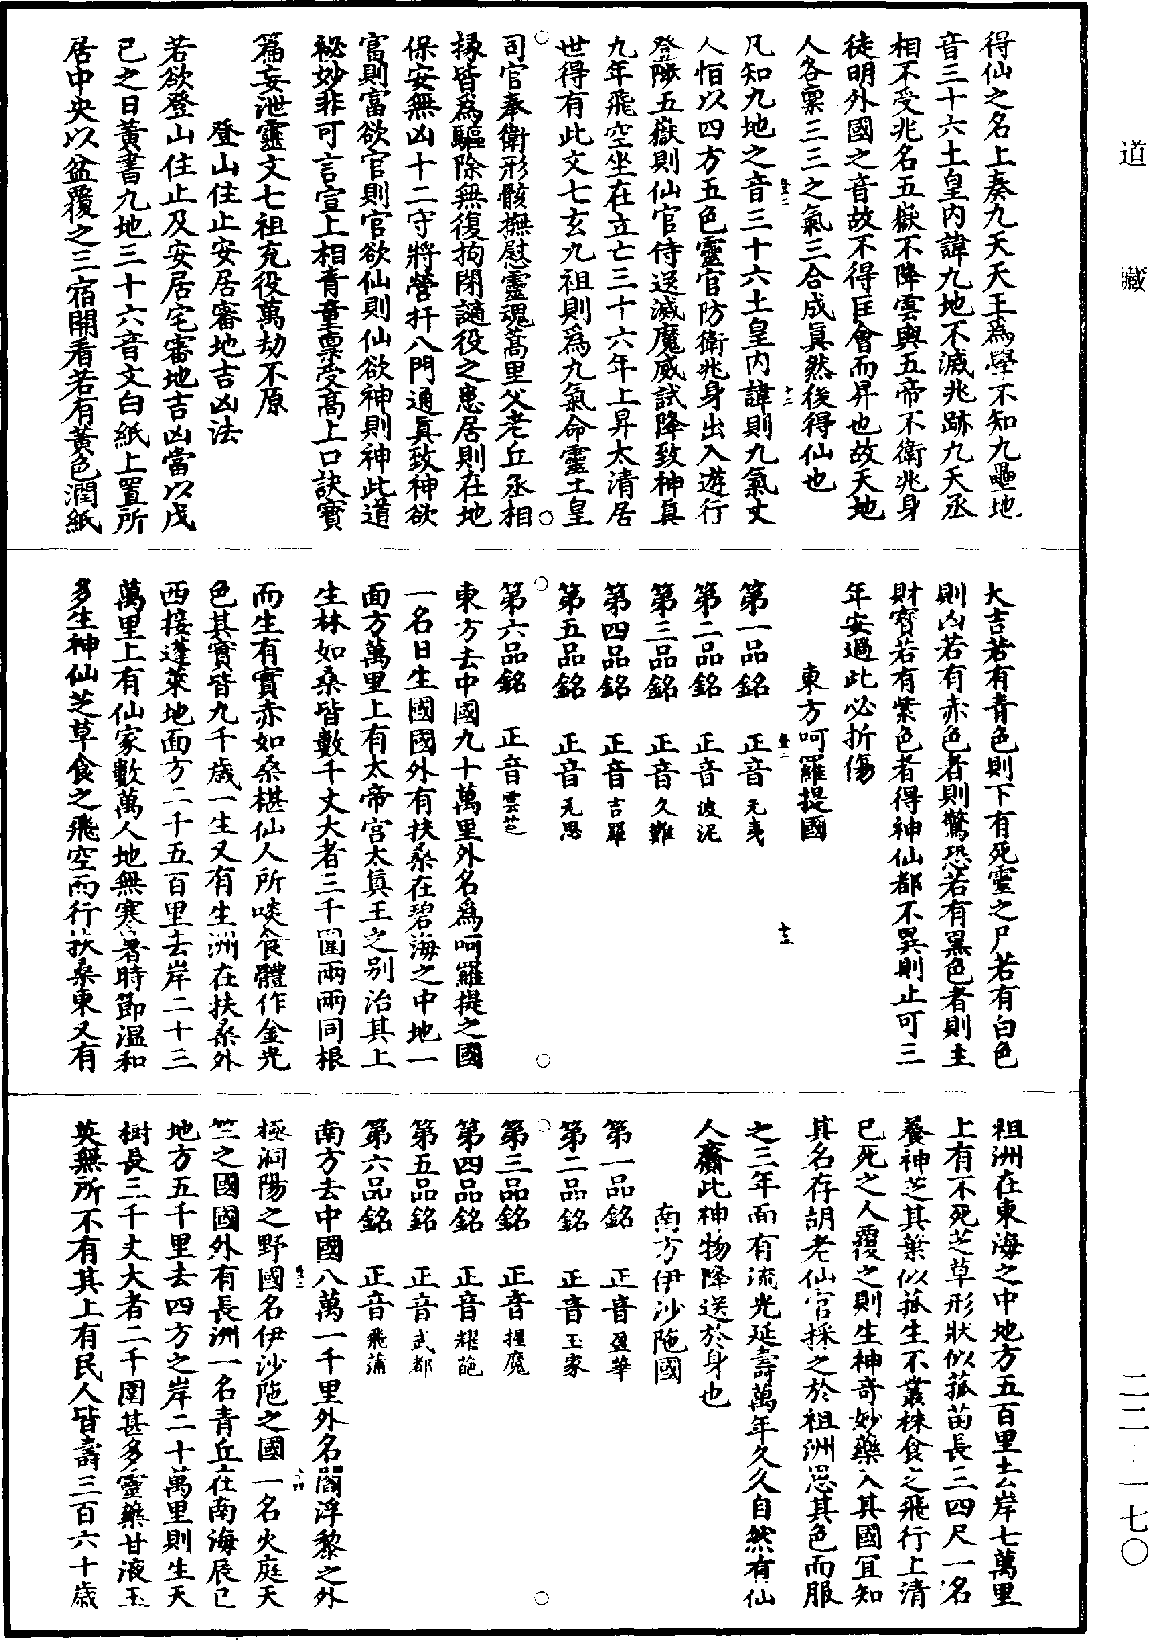 得仙之名上奏九天天王爲學不知九壘地
音三十六土皇內諱九地不滅兆跡九天丞
相不受兆名五嶽不降雲輿五帝不衛兆身
徒明外國之音故不得匡會而昇也故天地
人各稟三三之氣三合成眞然後得仙也
凡知九地之音三十六土皇內諱則九氣丈
人怕以四方五色靈官防衛兆身出入遊行
登陟五嶽則仙官侍送滅魔威試降致神真
九年飛空坐在立亡三十六年上昇太清居
世得有此文七玄九祖則爲九氣命靈土皇
司官奉衛形骸撫慰靈魂蒿里父老丘丞相
掾皆爲驅除無復拘閉讁役之患居則在地
保安無凶十二守將營扞八門通眞致神欲
富則富欲官則官欲仙則仙欲神則神此道
祕妙非可言宣上相青童稟受高上口訣寶
篇妄泄靈文七祖充役萬劫不原
登山住止安居審地吉凶法
若欲登山住止及安居宅審地吉凶當以戊
己之日黃書九地三十六音文白紙上置所
居中央以盆覆之三宿開看若有黃色潤紙
大吉若有青色則下有死靈之尸若有白色
則凶若有赤色者則驚恐若有黑色者則主
財寶若有紫色者得神仙都不異則止可三
年安過此必折傷
東方呵羅提國
第一品銘 正音无夷
第二品銘 正音波泥
第三品銘 正音久難
第四品銘 正音吉羅
第五品銘 正音无思
第六品銘 正音雲芒
東方去中國九十萬里外名爲呵羅提之國
一名日生國國外有扶桑在碧海之中地一
面方萬里上有太帝宮太眞王之別治其上
生林如桑皆數千丈大者三千圍兩兩同根
而生有實赤如桑椹仙人所啖食體作金光
色其實皆九千歲一生又有生洲在扶桑外
西接蓬萊地面方二千五百里去岸二十三
萬里上有仙家數萬人地無寒暑時節溫和
多生神仙芝草食之飛空而行扶桑東又有
祖洲在東海之中地方五百里去岸七萬里
上有不死芝草形狀似菰苗長三四尺一名
養神芝其葉似菰生不叢株食之飛行上清
已死之人覆之則生神奇妙藥入其國宜知
其名存胡老仙官採之於祖洲思其色而服
之三年面有流光延壽萬年久久自然有仙
人齎此神物降送於身也
南方伊沙陁國
第一品銘 正音盈華
第二品銘 正音玉家
第三品銘 正音揠魔
第四品銘 正音耀葩
第五品銘 正音武都
第六品銘 正音飛蒲
南方去中國八萬一千里外名閻浮黎之外
極洞陽之野國名伊沙陁之國一名火庭天
竺之國國外有長洲一名青丘在南海辰巳
地方五千里去四方之岸二十萬里則生天
樹長三千丈大者二千圍甚多靈藥甘液玉
英無所不有其上有民人皆壽三百六十歲
道藏
二二·一七〇